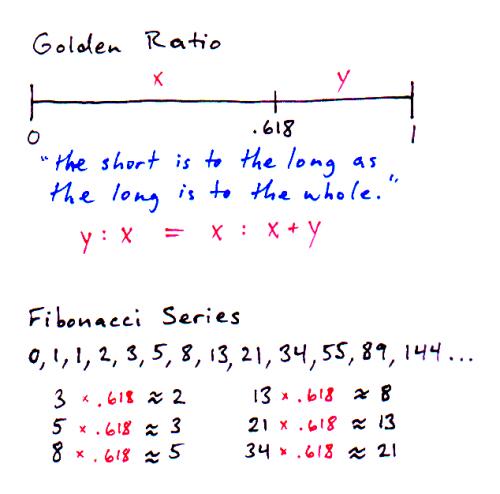 Golden Ratio
x y
0 .618 1
"the short is to the long as
the long is to the whole."
y : x = x : x + y
Fibonacci Series
0, 1, 1, 2, 3, 5, 8, 13, 21, 34, 55, 89, 144 ...
3 × .618 ≈ 2 13 × .618 ≈ 8
5 × .618 ≈ 3 21 × .618 ≈ 13
8 × .618 ≈ 5 34 × .618 ≈ 21